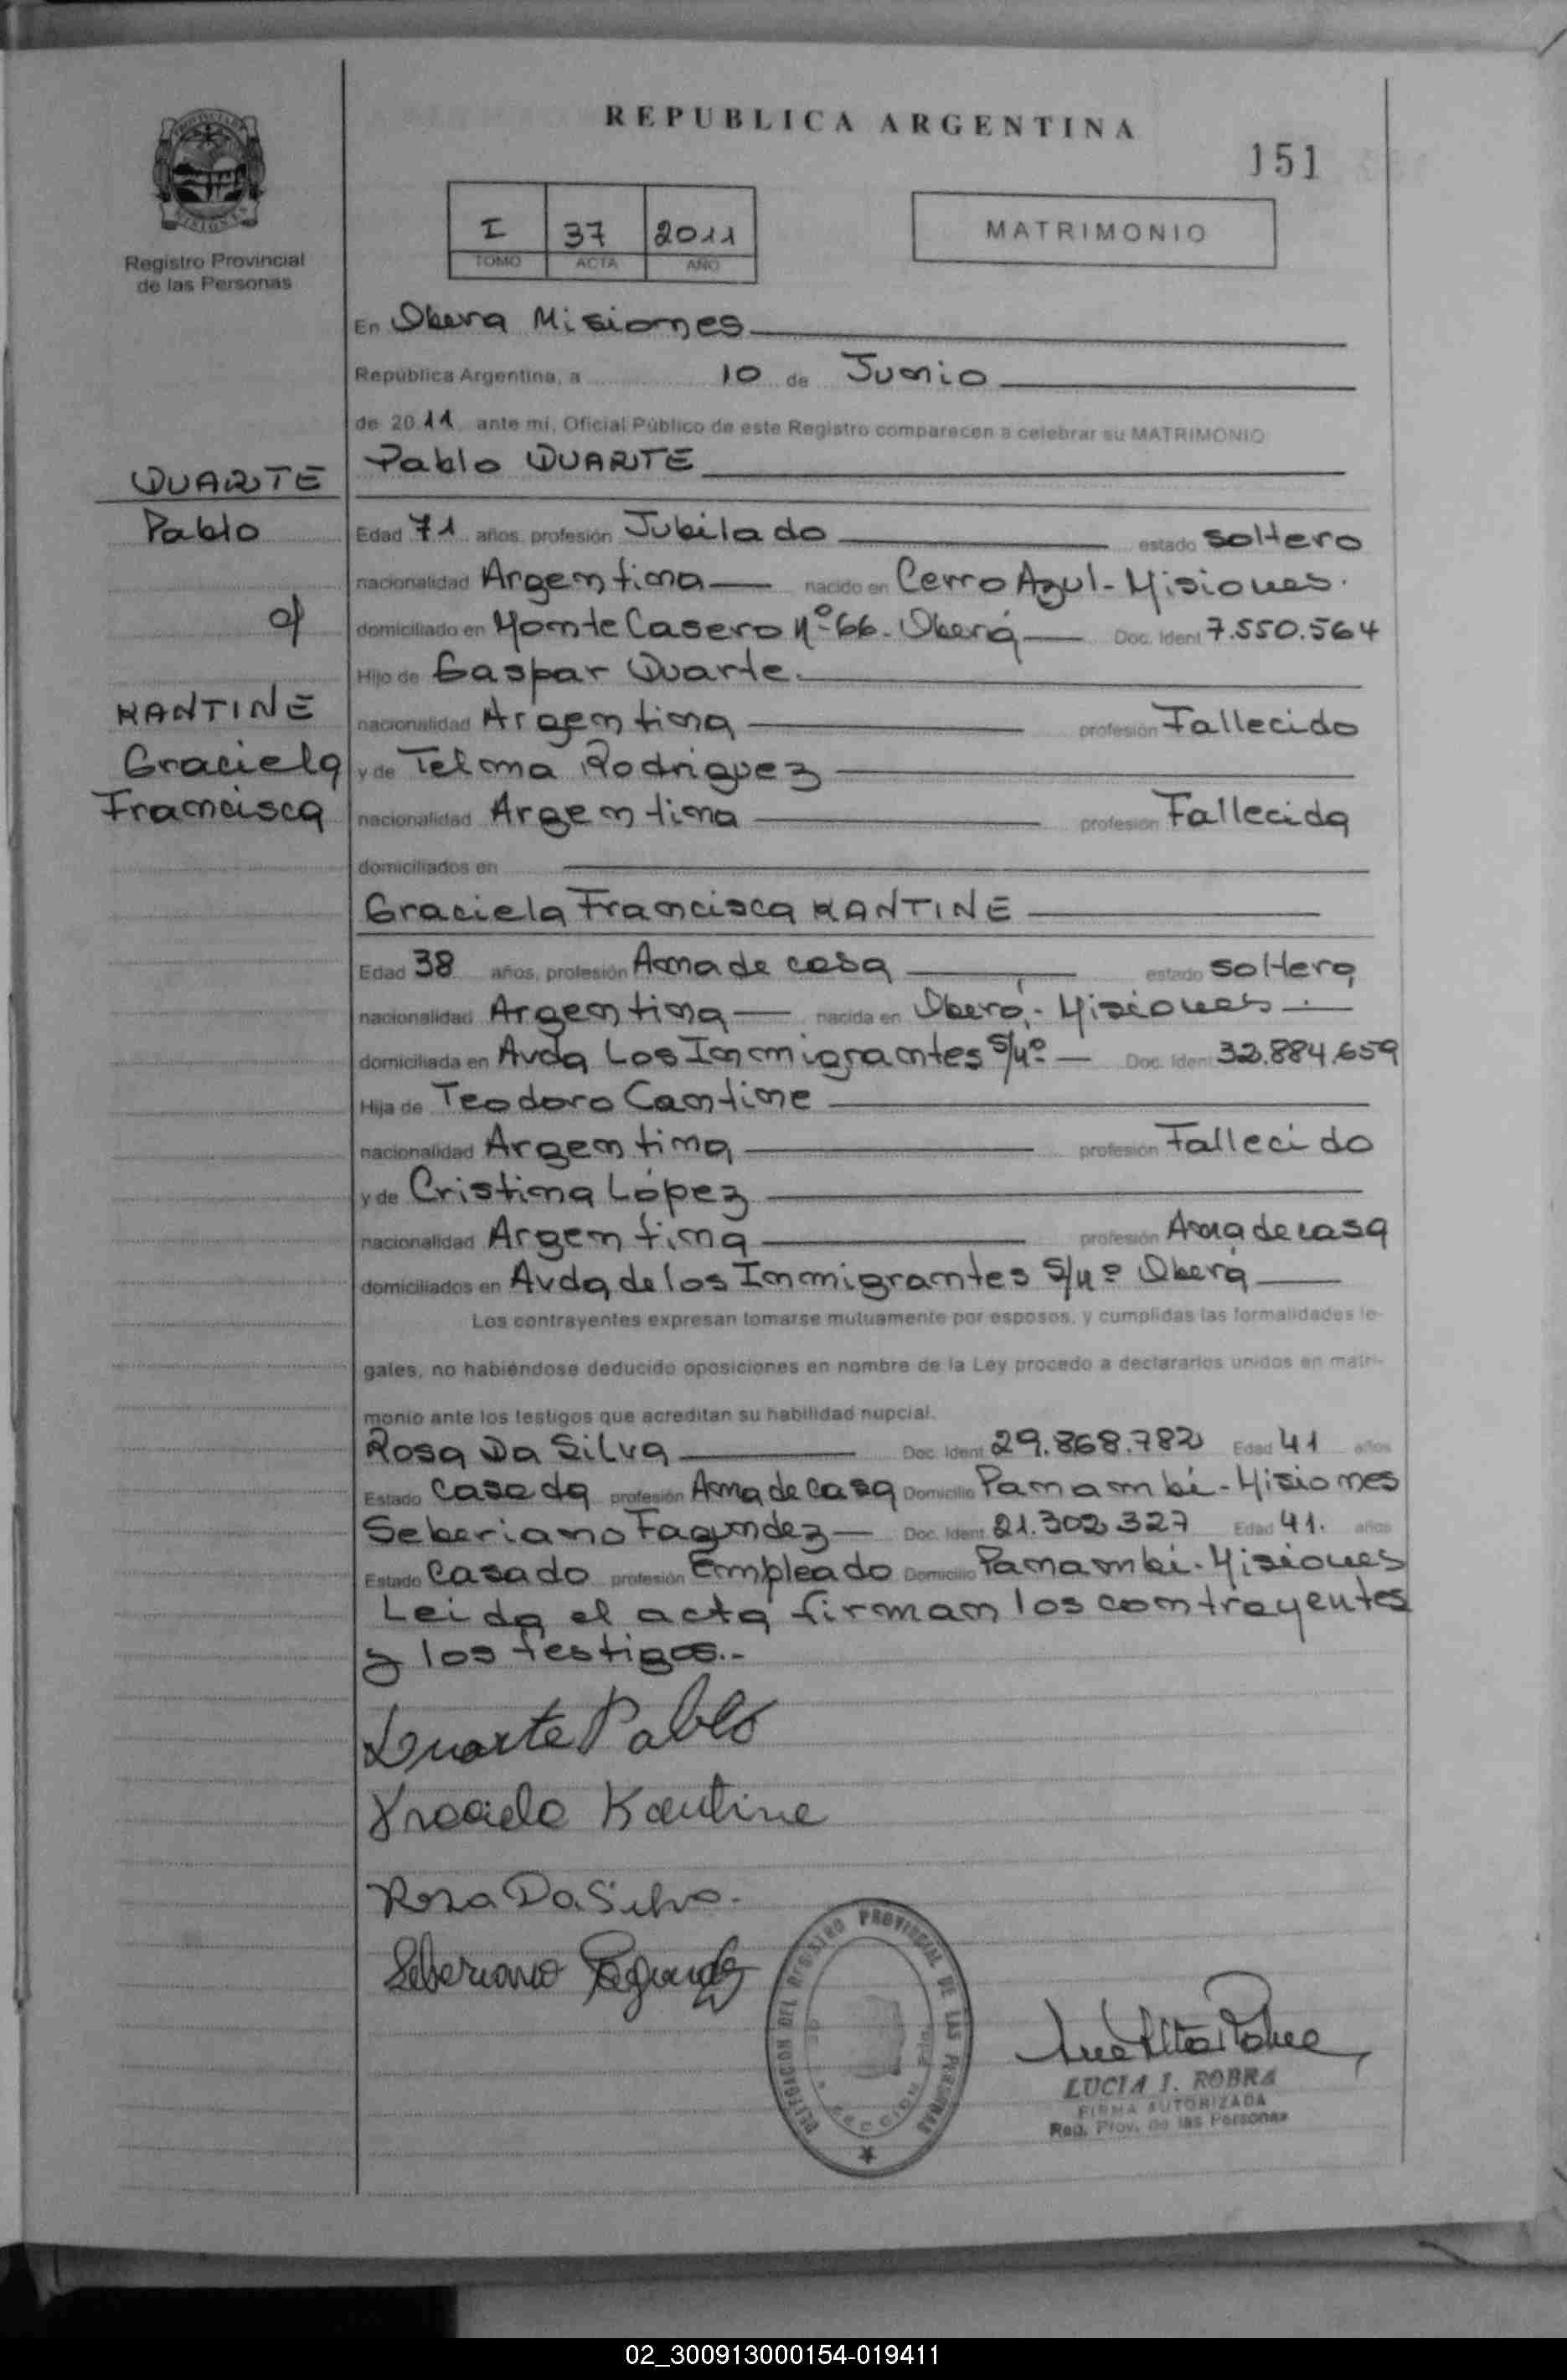 REPUBLICA ARGENTINA
151
I 37 2011
TOMO ACTA AÑO
MATRIMONIO
Registro Provincial
de las Personas
En Obera Misiones
República Argentina, a 10 de Junio
de 2011 ante mí, Oficial Público de este Registro comparecen a celebrar su MATRIMONIO
Pablo DUARTE
DUARTE
Pablo
c/
KANTINE
Graciela
Francisca
Edad 71 años, profesión Jubilado estado soltero
nacionalidad Argentina nacido en Cerro Azul - Misiones.
domiciliado en Monte Casero Nº 66 - Oberá Doc. Ident 7.550.564
Hijo de Gaspar Duarte.
nacionalidad Argentina profesión Fallecido
y de Telma Rodriguez
nacionalidad Argentina profesión Fallecida
domiciliados en
Graciela Francisca KANTINE
Edad 38 años, profesión Ama de casa estado soltera
nacionalidad Argentina nacida en Oberá - Misiones
domiciliada en Avda Los Inmigrantes S/Nº Doc. Ident 32.884.659
Hija de Teodoro Cantine
nacionalidad Argentina profesión Fallecido
y de Cristina López
nacionalidad Argentina profesión Ama de casa
domiciliados en Avda de los Inmigrantes S/Nº Oberá
Los contrayentes expresan tomarse mutuamente por esposos, y cumplidas las formalidades le-
gales, no habiéndose deducido oposiciones en nombre de la Ley procedo a declararlos unidos en matri-
monio ante los testigos que acreditan su habilidad nupcial.
Rosa Da Silva Doc. Ident 29.868.782 Edad 41 años
Estado Casada profesión Ama de casa Domicilio Panambi - Misiones
Seberiano Fagundez Doc. Ident 21.302.327 Edad 41. años
Estado Casado profesión Empleado Domicilio Panambi - Misiones
Leida el acta firman los contrayentes
y los testigos.-
Duarte Pablo
Graciela Kantine
Rosa Da Silva.
Seberiano Fagundez
DELEGACION DEL REGISTRO PROVINCIAL DE LAS PERSONAS
LUCIA I. ROBRA
FIRMA AUTORIZADA
Reg. Prov. de las Personas
02_300913000154-019411